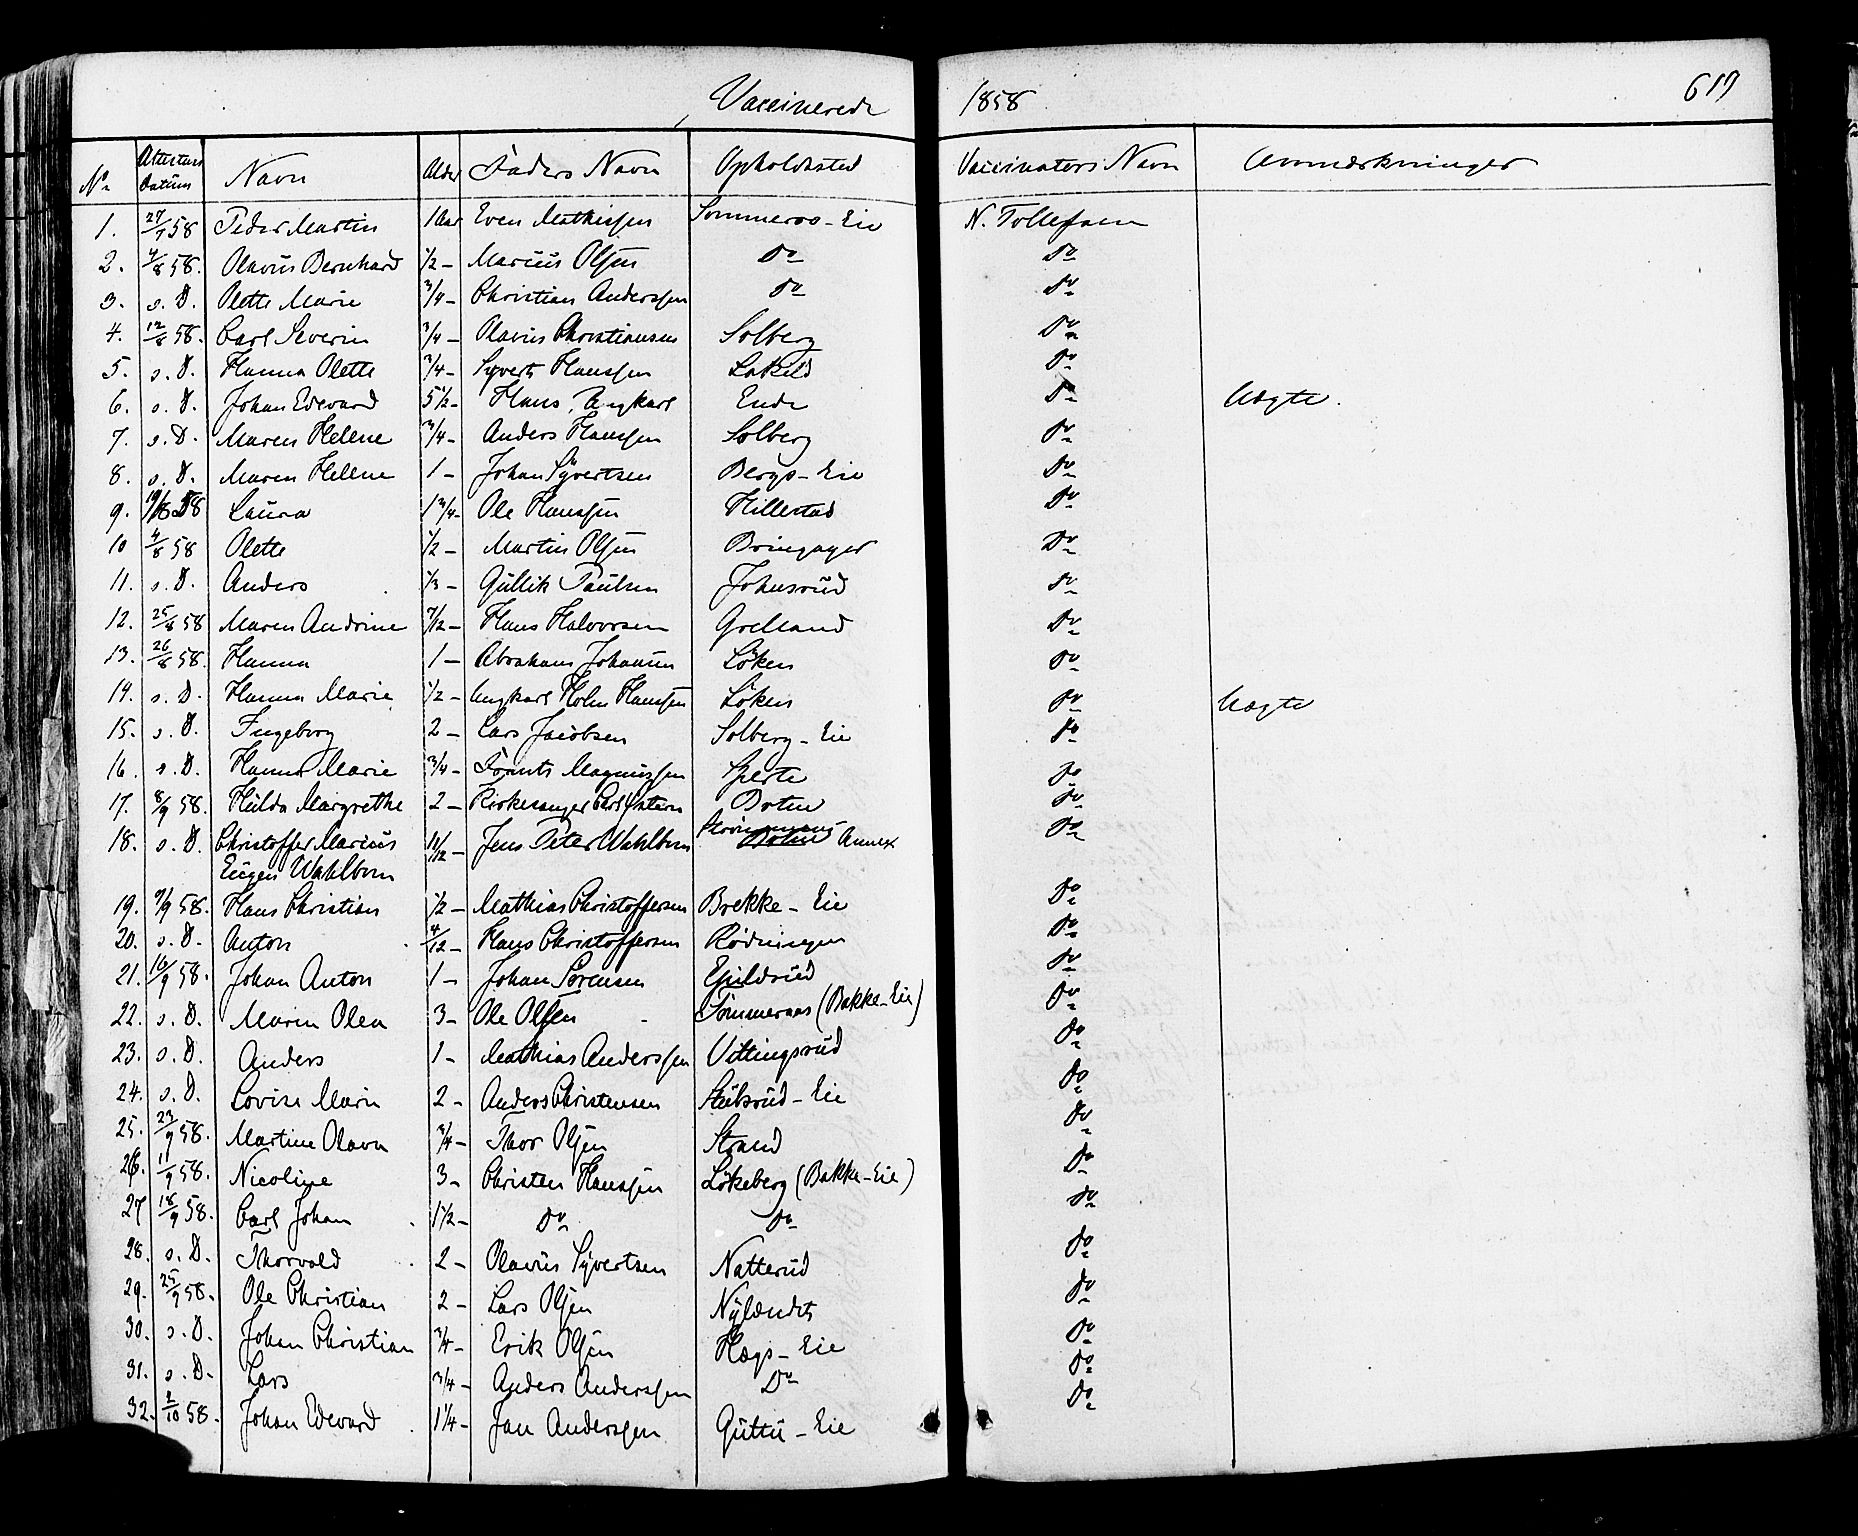 Vaccinerede 1858 617
No Attestens Datum Navn Alder Faders Navn Opholdssted Vaccinators Navn Anmærkninger
1. 27/7 58 Peder Martin 1 Aar Even Mathissen Sommeroo-Eie N. Tollefsen
2. 4/8 58. Olavüs Bernhard 1/2 - Mariüs Olsen Do Do
3. s. D. Olette Marie 3/4 - Christian Anderssen Do Do
4. 12/8 58. Carl Severin 3/4 - Olavüs Christiansen Solberg Do
5. s. D. Hanna Olette 3/4 - Syvert Hanssen Do
6. s. D. Johan Edevard 5 1/2 - Hans, Ungkarl Ende Do Uægte.
7. s. D. Maren Helene 3/4 - Anders Hanssen Solberg Do
8. s. D. Maren Helene 1 - Johan Syvertsen Bergs-Eie Do
9. 19/8 58 Laüra 1 3/4 - Ole Hanssen Hillestad Do
10 4/8 58 Olette 1/2 - Martin Olsen Bringager Do
11. s. D. Anders 1/3 - Güllik Paülsen Johnsrüd Do
12. 25/8 58 Maren Andrine 7/12 - Hans Halvorsen Grelland Do
13. 26/8 58. Hanna 1 - Abraham Johansen Löken Do
14. s. D. Hanna Marie 1/2 - Ungkarl Holm Hanssen Löken Do Uægte
15. s. D. Ingeborg 2 - Lars Jacobsen Solberg-Eie Do
16. s. D. Hanna Marie 3/4 - Magnussen Do
17. 8/9 58. Hülda Margrethe 2 - Kirkesanger Carl Botne Do
18. s. D. Christoffer Mariüs 11/12 - Jens Peter Wahlbom Strömmens- Botne Annex Do
Eügen Wahlbom
19. 9/9 58. Hans Christian 1/2 - Mathias Christoffersen Brekke-Eie Do
20. s. D. Anton 4/12 - Hans Christoffersen Rödningen Do
21. 16/9 58. Johan Anton 1 - Johan Sörensen Ejüldsrüd Do
22. s. D. Maren Olea 3 - Ole Olsen Sommeraas (Bakke-Eie) Do
23. s. D. Anders 1 - Mathias Anderssen Vittingsrüd Do
24. s. D. Lovise Marie 2 - Anders Christensen Stübsrüd-Eie Do
25. 23/9 58. Martine Olava 3/4 - Thor Olsen Strand Do
26. 11/9 58. Nicoline 3 - Christen Hanssen Lökeberg (Bakke-Eie) Do
27 18/9 58. Carl Johan 1 1/2 - Do Do Do
28. s. D. Thorvald 2 - Olavüs Syvertsen Natterüd Do
29. 25/9 58. Ole Christian 2 - Lars Olsen Nylændet Do
30. s. D. Johan Christian 3/4 - Erik Olsen Hægs-Eie Do
31. s. D. Lars 3/4 - Anders Anderssen Do Do
32. 2/10 58. Johan Edevard 1 1/4 - Jan Anderssen Güttü-Eie Do